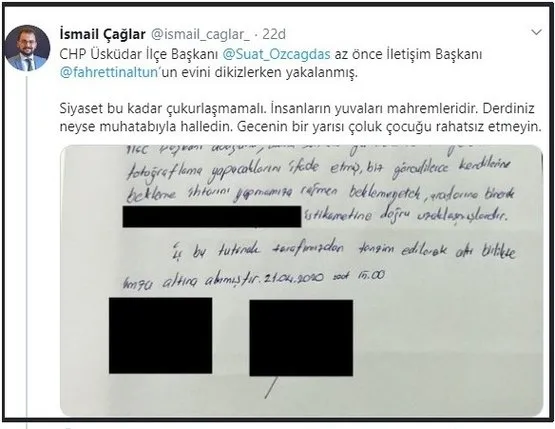 İsmail Çağlar @ismail_caglar_ · 22d
CHP Üsküdar İlçe Başkanı @Suat_Ozcagdas az önce İletişim Başkanı
@fahrettinaltun'un evini dikizlerken yakalanmış.
Siyaset bu kadar çukurlaşmamalı. İnsanların yuvaları mahremleridir. Derdiniz
neyse muhatabıyla halledin. Gecenin bir yarısı çoluk çocuğu rahatsız etmeyin.
fotoğraflama yapacaklarını ifade etmiş, biz görevlilerce kendilerine
bekleme ihtarını yapmamıza rağmen beklemeyerek, araclarına binerek
istikametine doğru uzaklaşmışlardır.
iş bu tutanak tarafımızdan tanzim edilerek altı birlikte
imza altına alınmıştır. 21.04.2020 saat 15.00